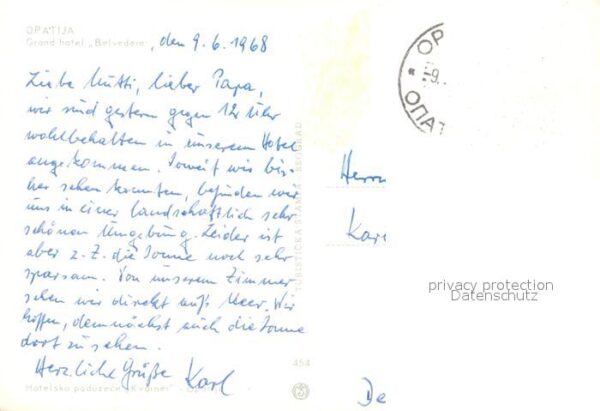 OPATIJA
Grand hotel „Belvedere"
, den 9.6.1968
Liebe Mutti, lieber Papa,
wir sind gestern gegen 12 Uhr
wohlbehalten in unserem Hotel
angekommen. Soweit wir bis-
her sehen konnten, befinden wir
uns in einer landschaftlich sehr
schönen Umgebung. Leider ist
aber z.Z. die Sonne noch sehr
sparsam. Von unserem Zimmer
sehen wir direkt aufs Meer. Wir
hoffen, demnächst auch die Sonne
dort zu sehen.
Herzliche Grüße Karl
Hotelsko poduzeće „Kvarner"
TURISTIČKA ŠTAMPA BEOGRAD
454
OP
9.
ОПАТ
Herrn
Karl
De
privacy protection
Datenschutz